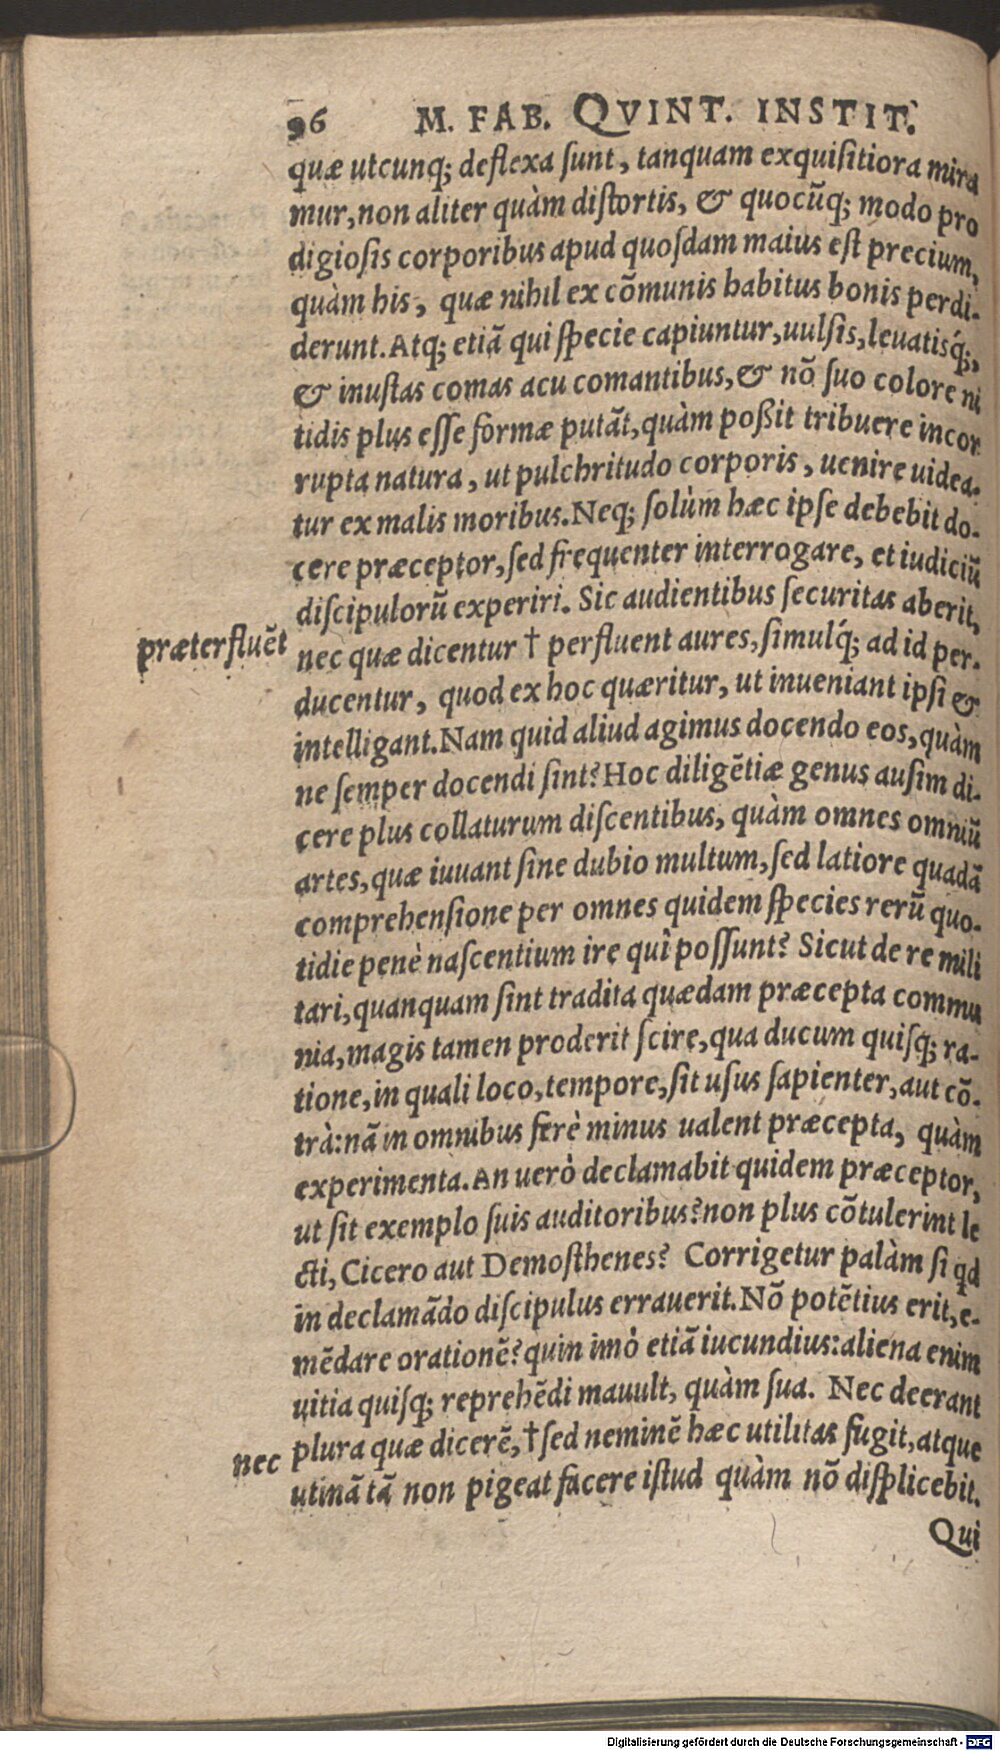 96 M. FAB. QVINT. INSTIT.
quæ utcunq; deflexa ſunt, tanquam exquiſitiora mira
mur, non aliter quàm diſtortis, & quocũq; modo pro
digioſis corporibus apud quoſdam maius eſt precium,
quàm his, quæ nihil ex cõmunis habitus bonis perdi-
derunt. Atq; etiã qui ſpecie capiuntur, uulſis, leuatisq́;,
& inuſtas comas acu comantibus, & nõ ſuo colore ni
tidis plus eſſe formæ putãt, quàm poßit tribuere incor
rupta natura, ut pulchritudo corporis, uenire uidea-
tur ex malis moribus. Neq; ſolùm hæc ipſe debebit do-
cere præceptor, ſed frequenter interrogare, et iudiciũ
diſcipulorũ experiri. Sic audientibus ſecuritas aberit,
præterfluẽt
nec quæ dicentur † perfluent aures, ſimulq́; ad id per-
ducentur, quod ex hoc quæritur, ut inueniant ipſi &
intelligant. Nam quid aliud agimus docendo eos, quàm
ne ſemper docendi ſint? Hoc diligẽtiæ genus auſim di-
cere plus collaturum diſcentibus, quàm omnes omniũ
artes, quæ iuuant ſine dubio multum, ſed latiore quadã
comprehenſione per omnes quidem ſpecies rerũ quo-
tidie penè naſcentium ire quî poſſunt? Sicut de re mili
tari, quanquam ſint tradita quædam præcepta commu
nia, magis tamen proderit ſcire, qua ducum quiſq; ra-
tione, in quali loco, tempore, ſit uſus ſapienter, aut cõ-
trà: nã in omnibus ferè minus ualent præcepta, quàm
experimenta. An uerò declamabit quidem præceptor,
ut ſit exemplo ſuis auditoribus? non plus cõtulerint le
cti, Cicero aut Demoſthenes? Corrigetur palàm ſi qd
in declamãdo diſcipulus errauerit. Nõ potẽtius erit, e-
mẽdare orationẽ? quin imò etiã iucundius: aliena enim
uitia quiſq; reprehẽdi mauult, quàm ſua. Nec deerant
plura quæ dicerẽ, † ſed neminẽ hæc utilitas fugit, atque
nec
utinã tã non pigeat facere iſtud quàm nõ diſplicebit.
Qui
Digitalisierung gefördert durch die Deutsche Forschungsgemeinschaft - DFG